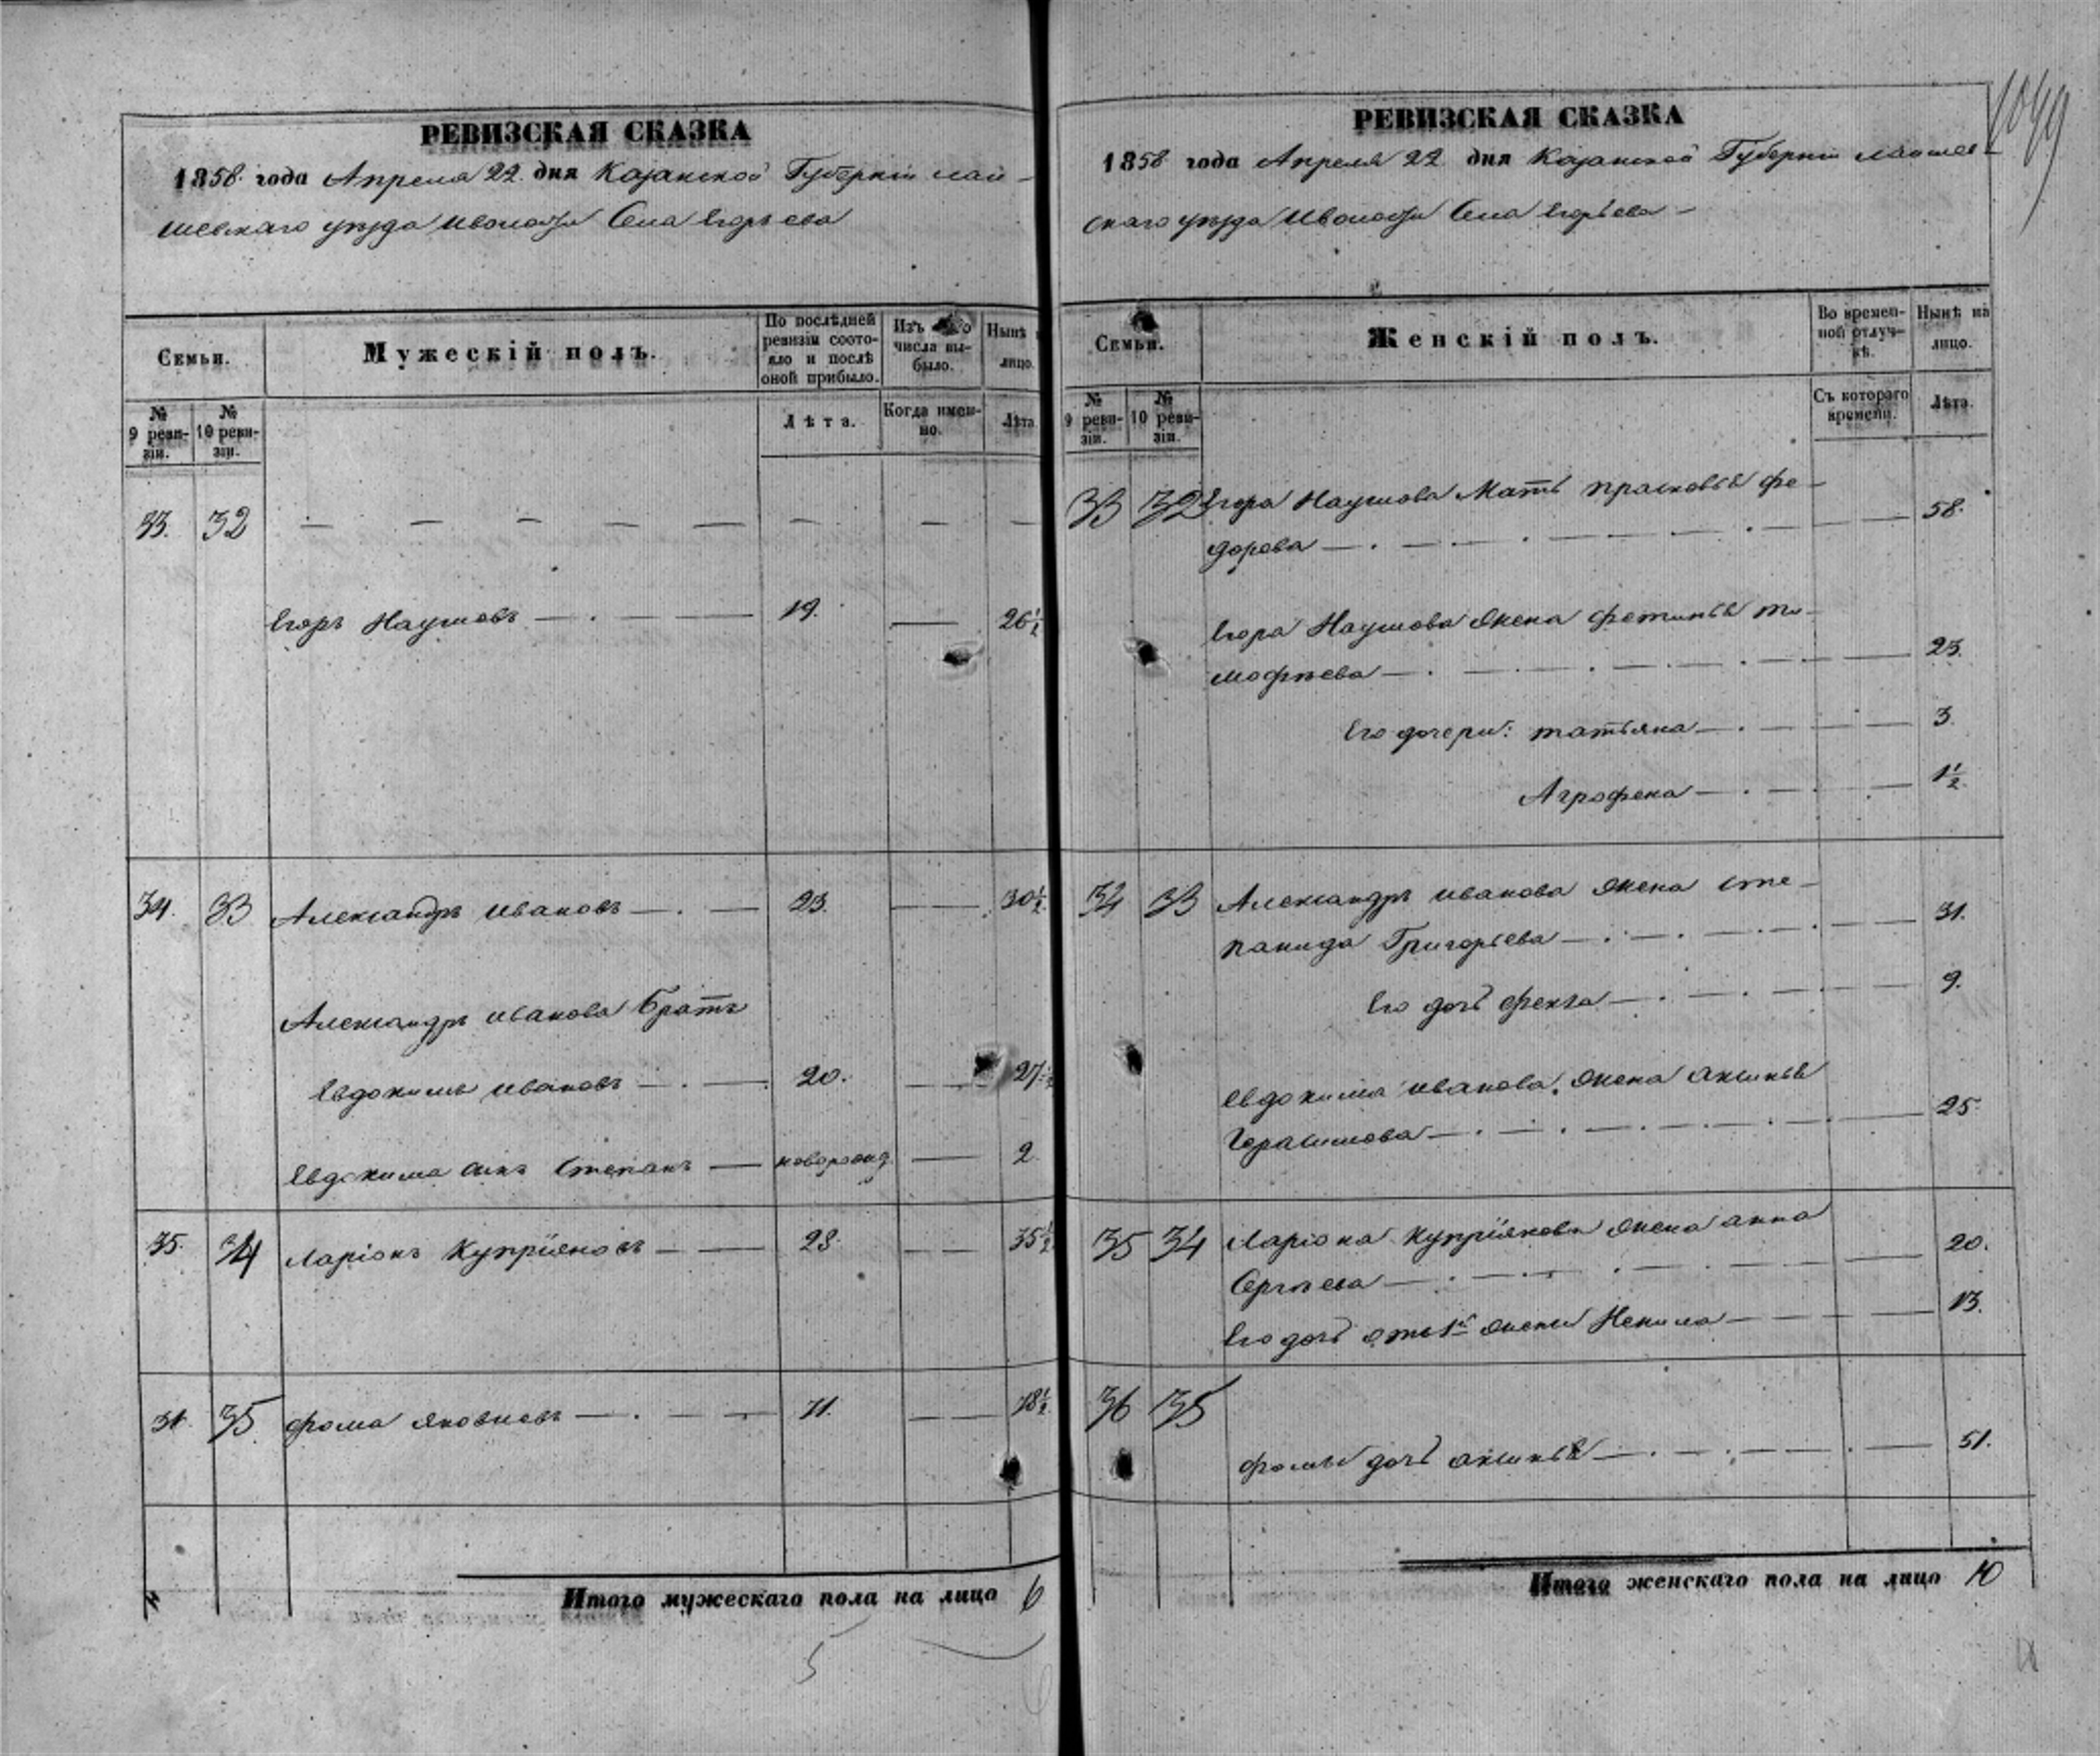 РЕВИЗСКАЯ СКАЗКА
1858 года Апреля 22 дня Казанской Губерніи Лаи-
шевскаго уѣзда Села Егорьева
Семьи.
Мужескій полъ.
По послѣдней ревизіи состо-яло и послѣ оной прибыло.
Изъ числа вы-было.
Нынѣ лицо.
№ 9 реви-зіи.
№ 10 реви-зіи.
Лѣта.
Когда имен-но.
Лѣта
33. 32 — — — — — — — —
Егоръ Наумовъ — . — — 19. — 26 1/2
34. 33 Александръ Ивановъ — . — 23. — — 30 1/2
Александръ Иванова Братъ
Евдокимъ Ивановъ — . — 20. — — 27 1/2
Евдокима сынъ Степанъ — новорожд. — 2
35. 34 Ларіонъ Купріяновъ — — 28. — — 35 1/2
35 Фома Яковлевъ — . — — 71. — — 78 1/2
Итого мужескаго пола на лицо 6
5
РЕВИЗСКАЯ СКАЗКА
1049
1858 года Апреля 22 дня Казанской Губерніи Лаишев-
скаго уѣзда Села Егорьева —
Семьи.
Женскій полъ.
Во времен-ной отлуч-кѣ.
Нынѣ на лицо.
№ 9 реви-зіи.
№ 10 реви-зіи.
Съ котораго времени.
Лѣта.
33 32 Егора Наумова Мать Прасковья Фе-
дорова — . — — . — — — . — — 58.
Егора Наумова жена Фетинья Ти-
мофѣева — . — — . — — . — — 23.
Его дочери: Татьяна — . — — — 3.
Агрофена — . — . — 1 1/2
34 33 Александръ Иванова жена Сте-
панида Григорьева — . — . — . — . — 31.
Его дочь Фекла — . — . — — — 9.
Евдокима Иванова жена Аксинья
Герасимова — . — . — — . — — 25.
35 34 Ларіона Купріянова жена Анна
Сергѣева — . — — . — — — 20.
Его дочь отъ 1й жены Ненила — — — — 13.
36 35
Фомы дочь Аксинья — . — . — — . — 51.
Итого женскаго пола на лицо 10